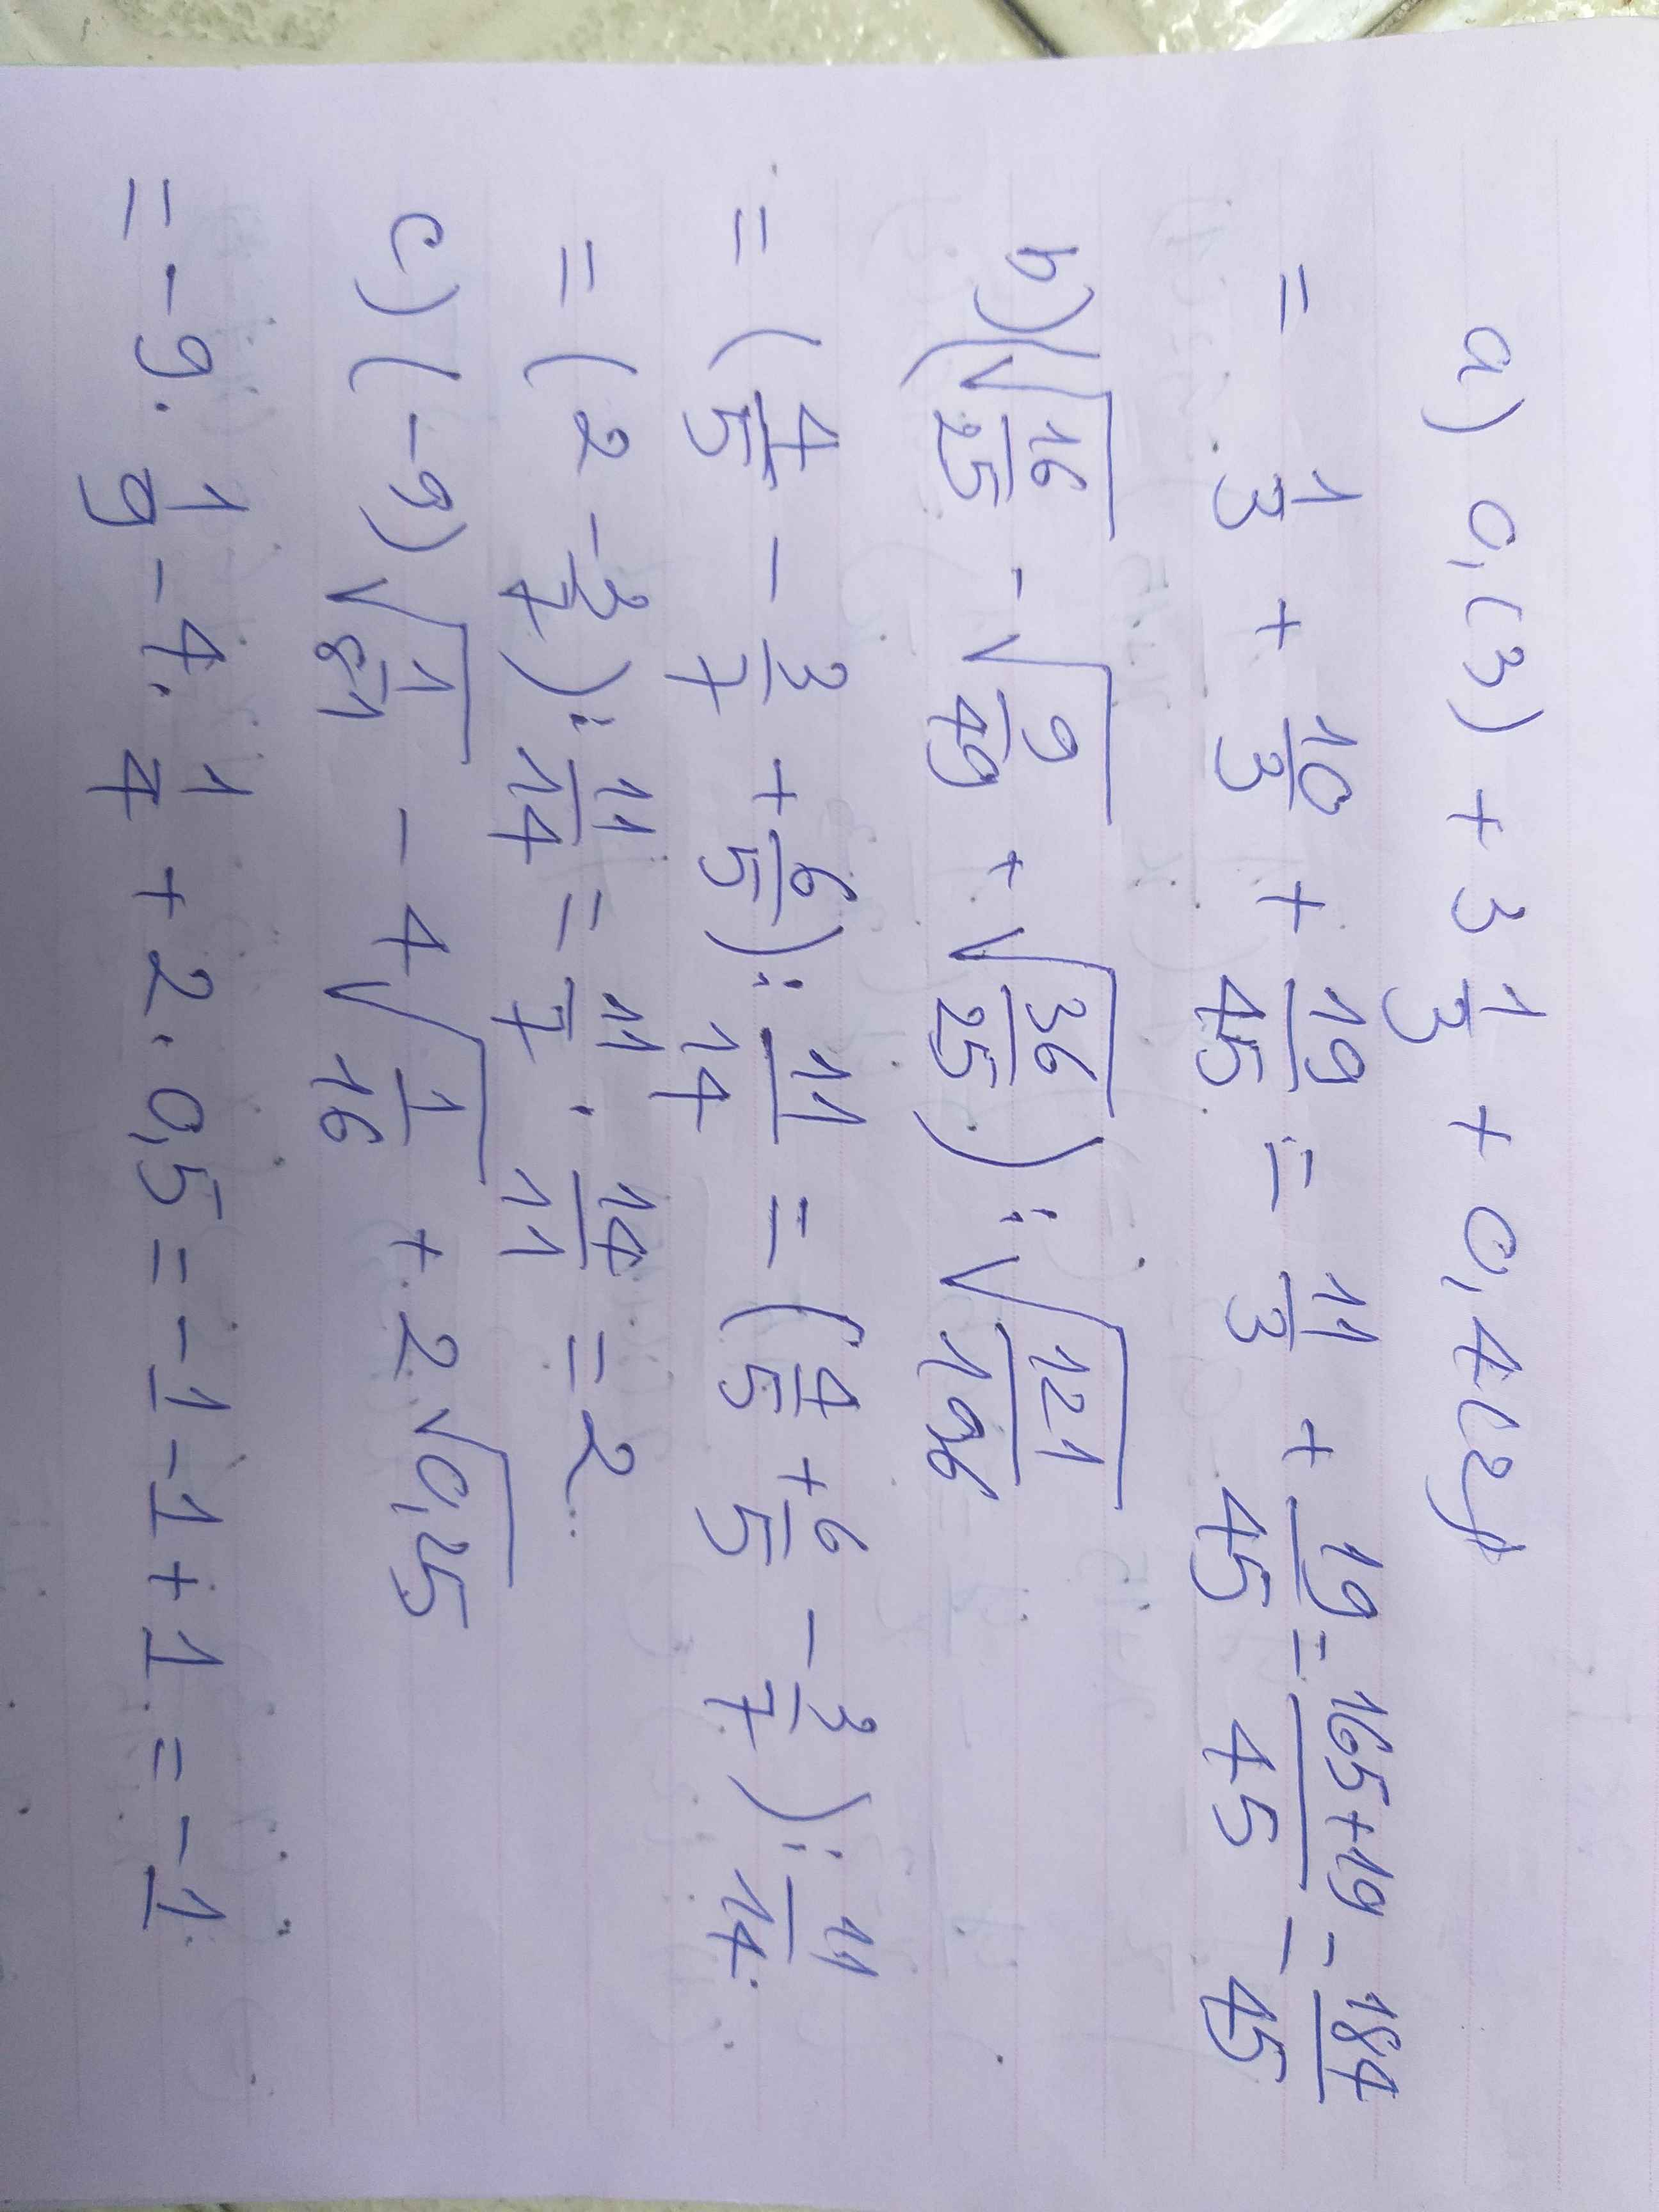 a) 0,(3) + 3 1/3 + 0,4(2)
= 1/3 + 10/3 + 19/45 = 11/3 + 19/45 = 165+19/45 = 184/45
b) (√16/25 - √9/49 + √36/25) : √121/196
= (4/5 - 3/7 + 6/5) : 11/14 = (4/5 + 6/5 - 3/7) : 11/14
= (2 - 3/7) : 11/14 = 11/7 . 14/11 = 2
c) (-9) √1/81 - 4 √1/16 + 2 √0,25
= -9 . 1/9 - 4 . 1/4 + 2 . 0,5 = -1 - 1 + 1 = -1